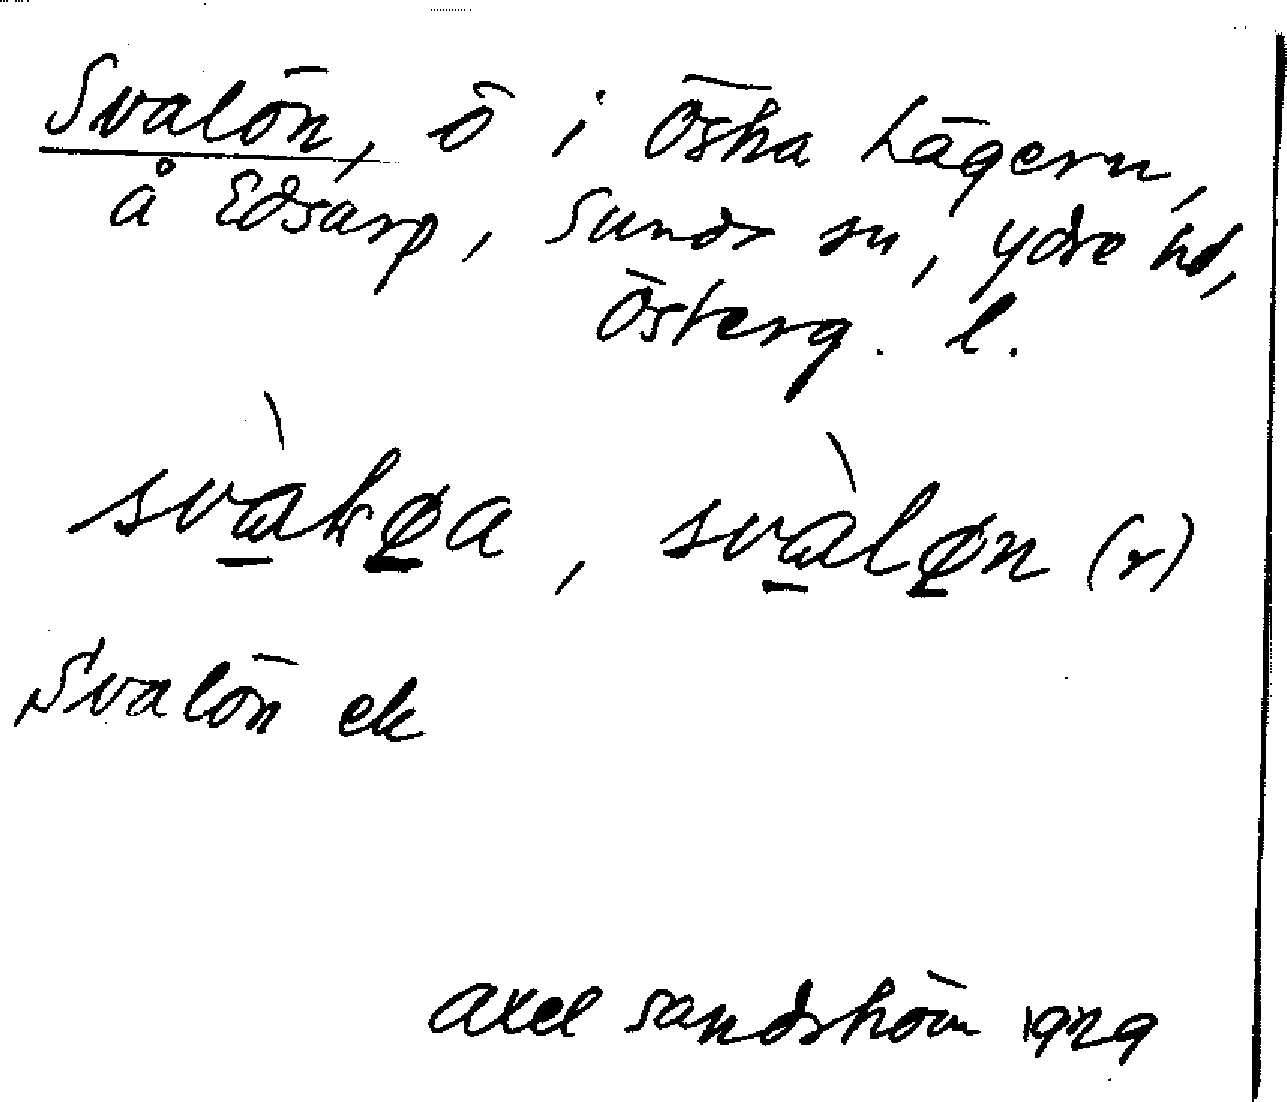 Svalön, ö i Östra Lägern,
å Edsarp, Sunds sn, Ydre hd,
Österg. l.
svàløa, svàløn (r)
Svalön ek
Axel Sandström 1929